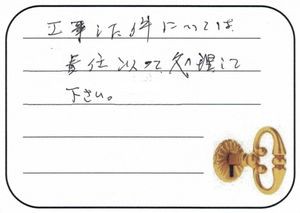 工事した件については
責任以って処理して
下さい。